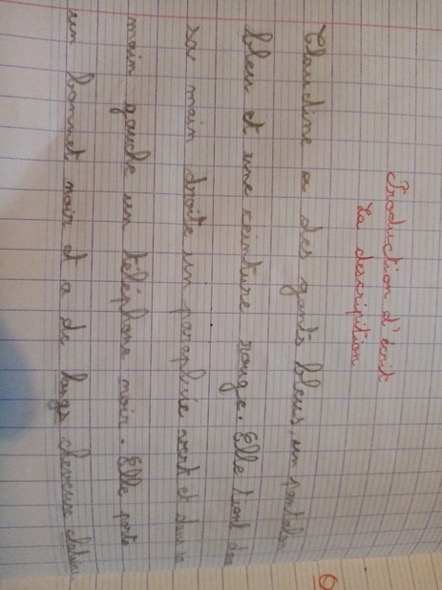 Production d'écrit
La description
Claudine a des gants bleus, un pantalon
bleu et une ceinture rouge. Elle tient dans
sa main droite un parapluie vert et dans sa
main gauche un téléphone noir. Elle porte
un bonnet noir et a de longs cheveux